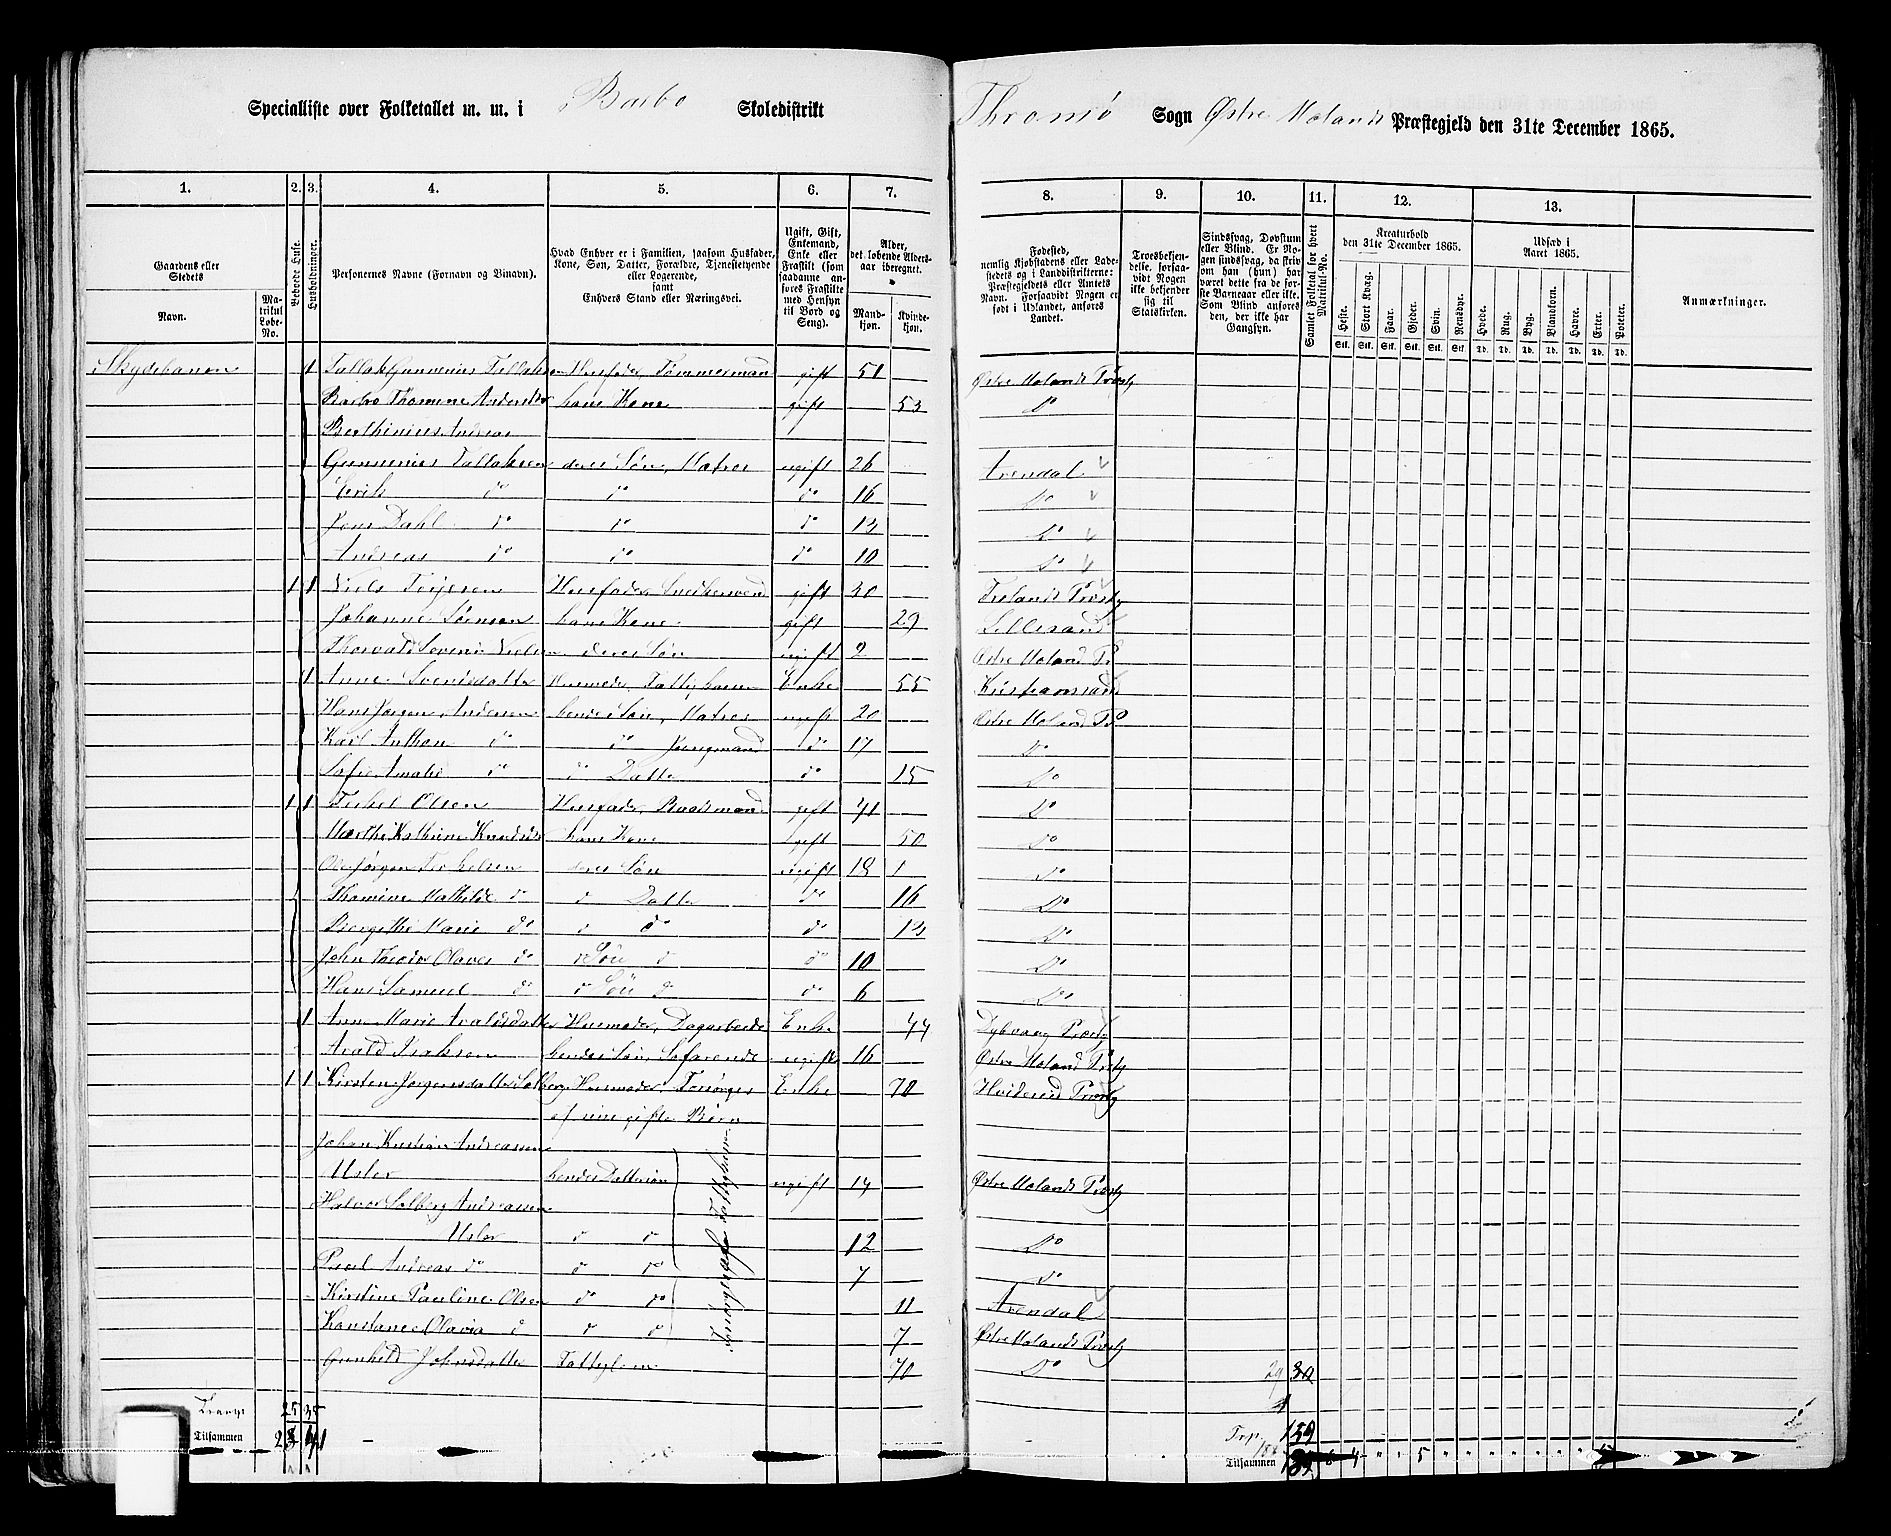 Specialliste over Folketallet m. m. i Barbo Skoledistrikt
Thromø Sogn Østre Molands Præstegjeld den 31te December 1865.
1. 2. 3. 4. 5. 6. 7.
8. 9. 10. 11. 12. 13.
Gaardens eller Stedets
Navn.
Matrikul Løbe-No.
Beboede Huse.
Husholdninger.
Personernes Navne (Fornavn og Vinavn).
Hvad Enhver er i Familien, saasom Husfader, Kone, Søn, Datter, Forældre, Tjenestetyende eller Logerende,
samt
Enhvers Stand eller Næringsvei.
Ugift, Gift, Enkemand, Enke eller Fraskilt (som saadanne anføres Fraskilte med Hensyn til Bord og Seng).
Alder, det løbende Aldersaar iberegnet.
Mandkjøn.
Kvindekjøn.
Fødested,
nemlig Kjøbstadens eller Ladestedets og i Landdistrikterne: Præstegjeldets eller Amtets Navn. Forsaavidt Nogen er født i Udlandet, anføres Landet.
Troesbekjendelse, forsaavidt Nogen ikke bekjender sig til Statskirken.
Sindssvag, Døvstum eller Blind. Er Nogen sindssvag, da skriv om han (hun) har været dette fra de første Barneaar eller ikke. Som Blind anføres den, der ikke har Gangsyn.
Samlet Folketal for hvert Matrikul-No.
Kreaturhold
den 31te December 1865.
Heste. Stort Kvæg. Faar. Gjeder. Svin. Rensdyr.
Stk. Stk. Stk. Stk. Stk. Stk.
Udsæd i
Aaret 1865.
Hvede. Rug. Byg. Blandkorn. Havre. Erter. Poteter.
Td. Td. Td. Td. Td. Td. Td.
Anmærkninger.
Skydebanen 1 Tallak Gunnenius Tallaksen Husfader, Tømmermand gift 51 Østre Molands Præstg
Barbro Thomine Andersdtr hans Kone gift 53 do
Berthinius Andreas
Gunnenius Tallaksen deres Søn, Matros ugift 26 Arendal
Erik do do do 16 Do
Jens Dahl do do do 13 Do
Andreas do do do 10 Do
1 1 Niels Terjesen Husfader Snedkersvend gift 30 Froland Præstg
Johanne Sörensen hans Kone gift 29 Lillesand
Thorvald Severin Nielsen deres Søn ugift 2 Østre Moland P
1 Anne Svenisdatter Husmoder, Fattiglem Enke 55 Kristianssand
Hans Jørgen Andersen hendes Søn, Matros ugift 20 Østre Moland P
Karl Anthon do do Jungmand do 17 Do
Sofie Amalie do do Datter do 15 Do
1 1 Terkel Olsen Husfader, Baadsmand gift 41 Do
Marthe Kathrine Knudsdtr hans Kone gift 50 Do
Ole Jørgen Terkelsen deres Søn ugift 18 1 Do
Thomine Mathilde do d Datter do 16 Do
Bergithe Marie do d do do 13 Do
John Theodor Olaves do d Søn d do 10 Do
Hans Samuel do d Søn d do 6 Do
1 Anne Marie Avaldsdatter Husmoder, Dagarbeide Enke 44 Dybvaag Præstg
Avald Isaksen hendes Søn, Søfarende ugift 16 Østre Moland Præstg
1 1 Kirsten Jørgensdatter Solberg Husmoder, Forsørges Enke 70 Hvideseid Præstg
af sine gifte Børn
Johan Kristian Andreassen
Usler hendes Dattersøn ugift 14 Østre Molands Præstg
Halvor Solberg Andreassen
Usler d d 12 Do
Paul Andreas do d do 7 Do
Kirstine Pauline Olsen do do 11 Arendal
Konstance Olavia d d d 7 Østre Molands Præstg
Gunhild Johnsdatter Fattiglem 70 Do
Forsørges af Fattigvæsenet
29 30
1
Transp 25 35
Tilsammen 28 41
Trp. 159
188
Tilsammen 189 6 4 " " 5 " " " " " " "